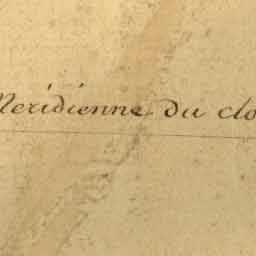 Meridienne du clo